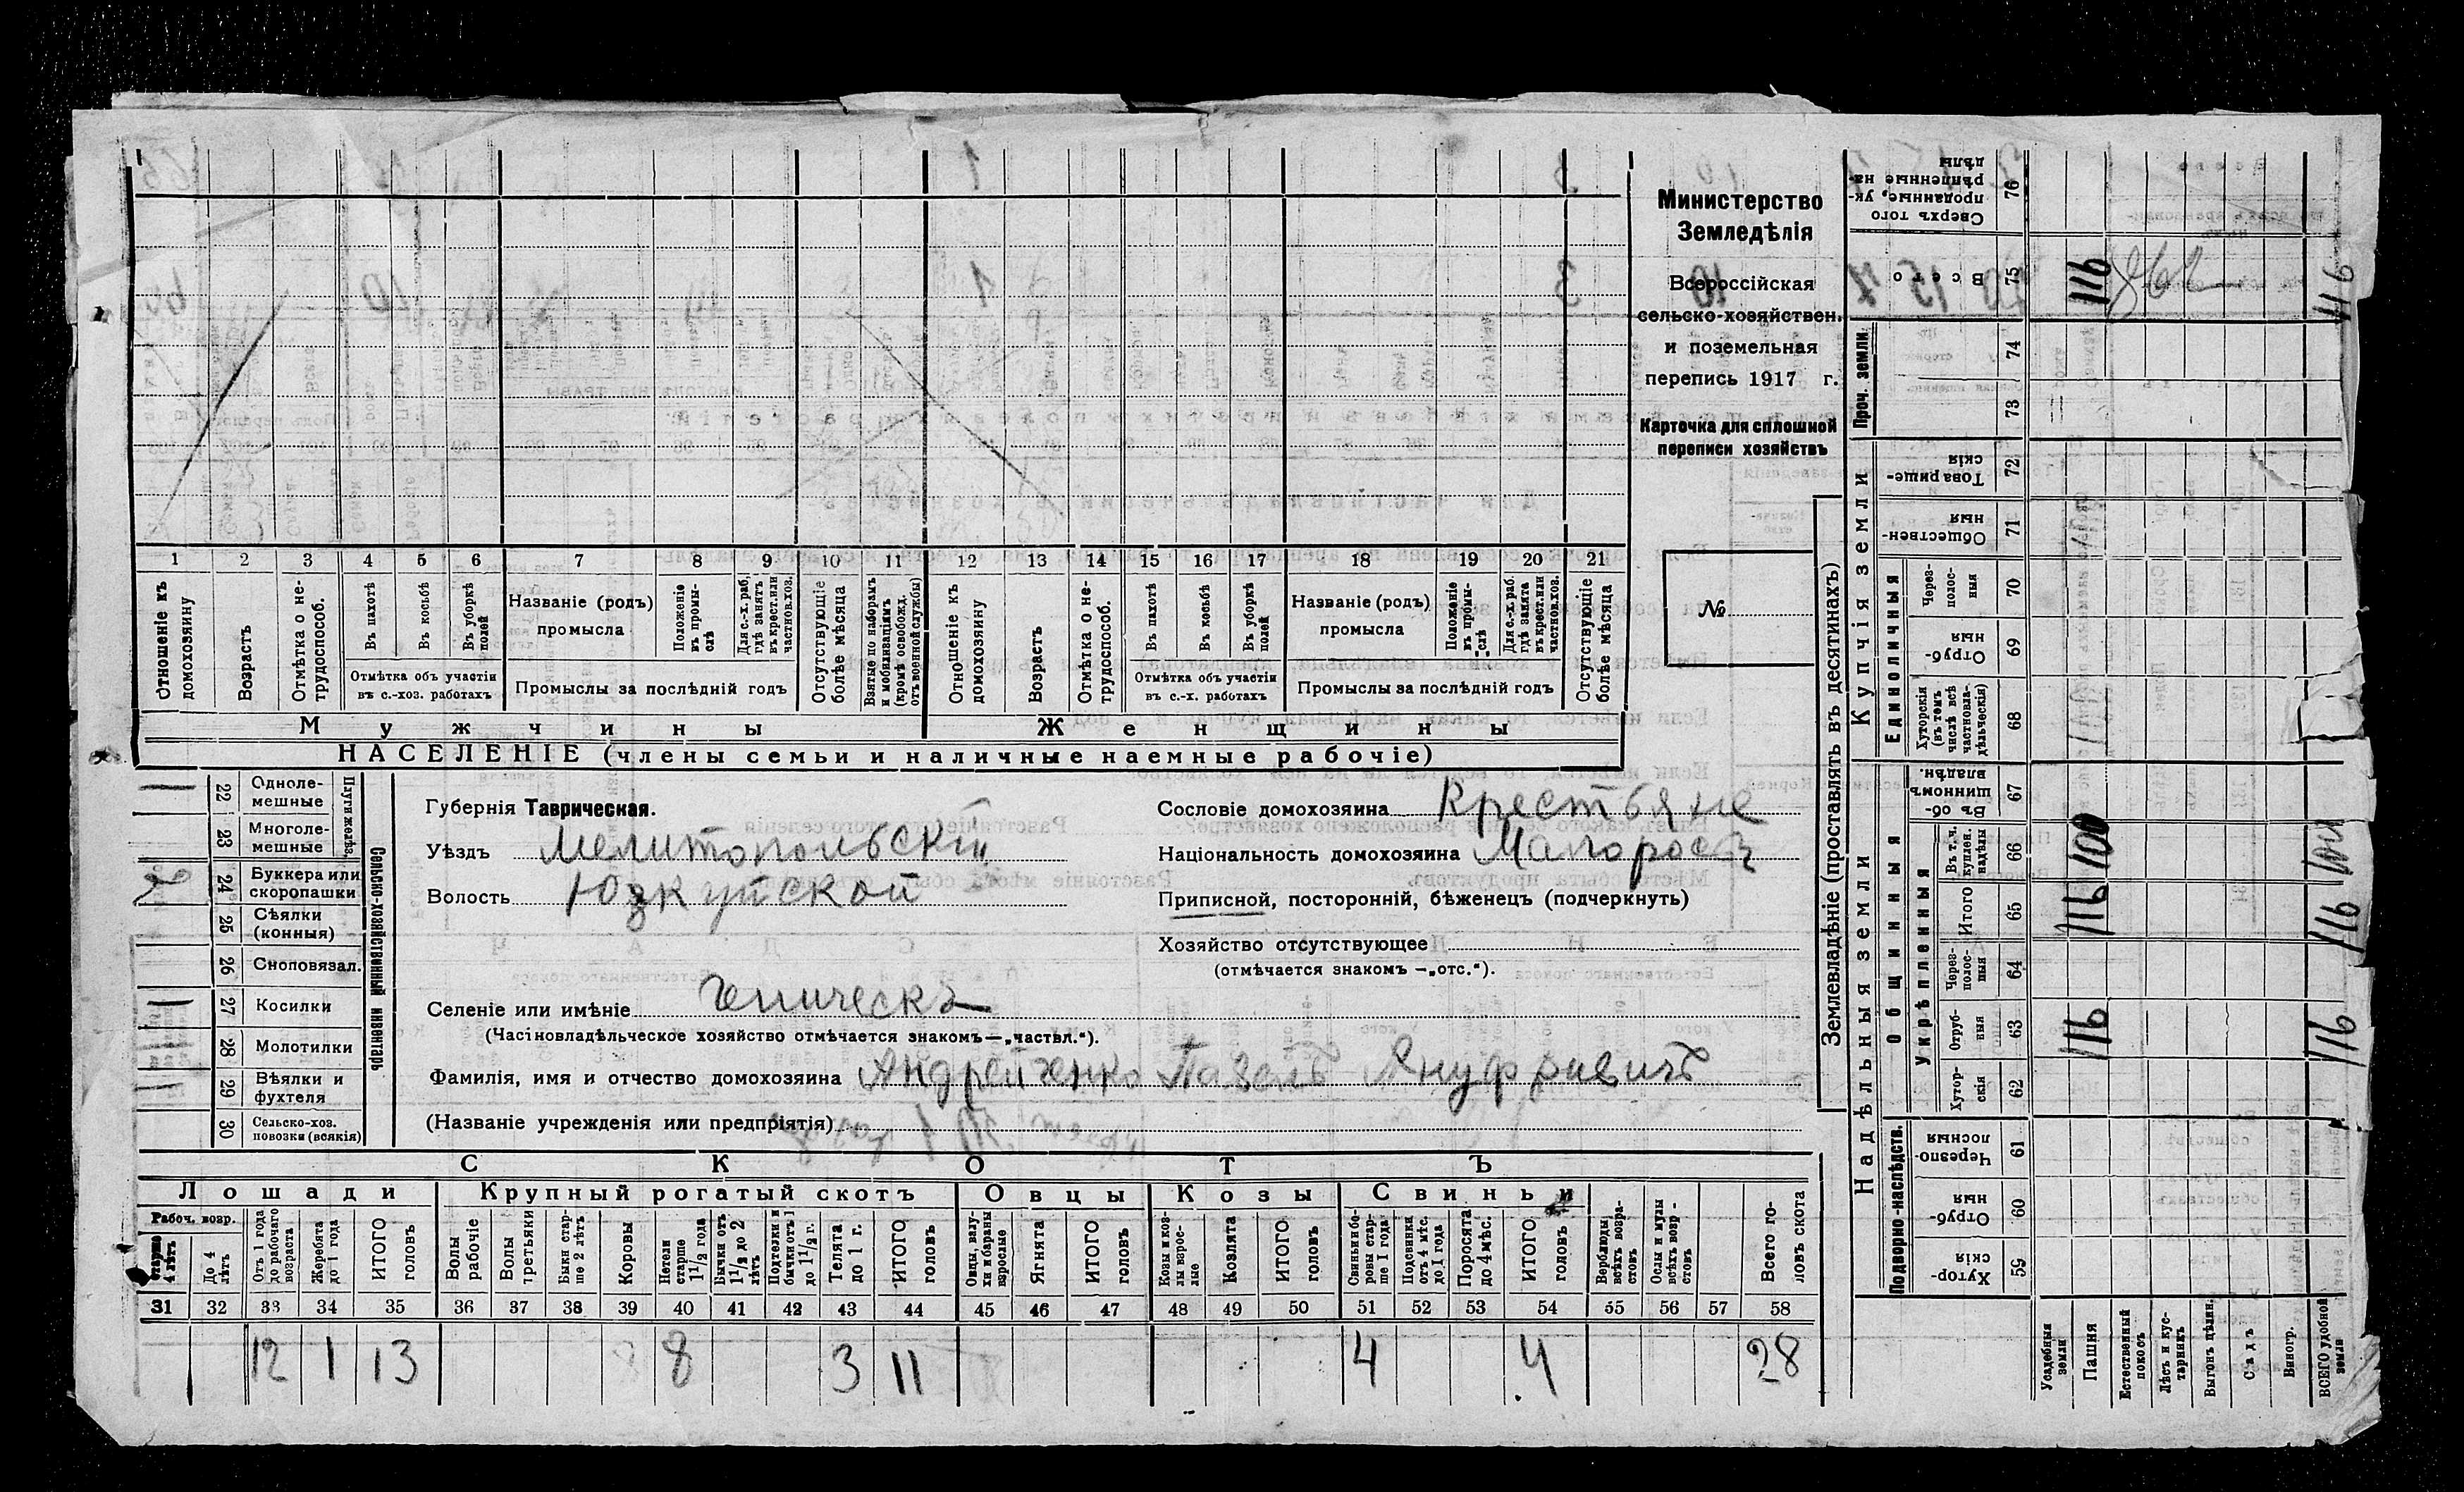 Министерство
Земледѣлія
Всероссійская
сельско-хозяйствен.
и поземельная
перепись 1917 г.
Карточка для сплошной
переписи хозяйствъ
№
1 2 3 4 5 6 7 8 9 10 11 12 13 14 15 16 17 18 19 20 21
Отношеніе къ домохозяину
Возрастъ
Отмѣтка о не-трудоспособ.
Въ пахотѣ
Въ косьбѣ
Въ уборкѣ полей
Отмѣтка объ участіи въ с.-хоз. работахъ
Названіе (родъ) промысла
Положеніе въ промы-слѣ
Для с.-х. раб. гдѣ занятъ въ крест. или частнов. хоз.
Промыслы за послѣдній годъ
Отсутствующіе болѣе мѣсяца
Взятые по наборамъ и мобилизаціямъ (кромѣ освобожд. отъ военной службы)
Отношеніе къ домохозяину
Возрастъ
Отмѣтка о не-трудоспособ.
Въ пахотѣ
Въ косьбѣ
Въ уборкѣ полей
Отмѣтка объ участіи въ с.-х. работахъ
Названіе (родъ) промысла
Положеніе въ промы-слѣ
Для с.-х. раб. гдѣ занята въ крест. или частнов. хоз.
Промыслы за послѣдній годъ
Отсутствующіе болѣе мѣсяца
Мужчины Женщины
НАСЕЛЕНІЕ (члены семьи и наличные наемные рабочіе)
Сельско-хозяйственный инвентарь
Плуги желѣз.
22 Одноле-мешные 1
23 Многоле-мешные
24 Буккера или скоропашки
25 Сѣялки (конныя)
26 Сноповязал.
27 Косилки 1
28 Молотилки
29 Вѣялки и фухтеля 1
30 Сельско-хоз. повозки (всякія)
Губернія Таврическая.
Уѣздъ Мелитопольскій
Волость Юзкуйской
Сословіе домохозяина Крестьяне
Національность домохозяина Малоросъ
Приписной, посторонній, бѣженец (подчеркнуть)
Хозяйство отсутствующее
(отмѣчается знакомъ —„отс.“).
Селеніе или имѣніе Геническъ
(Частновладѣльческое хозяйство отмѣчается знакомъ—„частвл.“).
Фамилія, имя и отчество домохозяина Андрейченко Павелъ Януфриевичъ
(Названіе учрежденія или предпріятія)
СКОТЪ
Лошади Крупный рогатый скотъ Овцы Козы Свиньи
Рабоч. возр.
старше 4 лѣтъ
До 4 лѣтъ
Отъ 1 года до рабочаго возраста
Жеребята до 1 года
ИТОГО головъ
Волы рабочіе
Волы третьяки
Быки стар-ше 2 лѣтъ
Коровы
Нетели старше 1½ года
Бычки отъ 1½ до 2 лѣтъ
Подтелки и бычки отъ 1 до 1½ г.
Телята до 1 г.
ИТОГО головъ
Овцы, валу-хи и бараны взрослые
Ягнята
ИТОГО головъ
Козы и коз-лы взрос-лые
Козлята
ИТОГО головъ
Свиньи и бо-ровы стар-ше 1 года
Подсвинки отъ 4 мѣс. до 1 года
Поросята до 4 мѣс.
ИТОГО головъ
Верблюды всѣхъ возра-стовъ
Ослы и мулы всѣхъ возр-стовъ
Всего го-ловъ скота
31 32 33 34 35 36 37 38 39 40 41 42 43 44 45 46 47 48 49 50 51 52 53 54 55 56 57 58
12 1 13 8 3 11 4 4 28
Землевладѣніе (проставлять въ десятинахъ)
Надѣльныя земли Купчія земли Проч. земли.
Подворно-наслѣдств. Общинныя Единоличныя
Укрѣпленныя
Хутор-скія 59
Отруб-ныя 60
Черезпо-лосныя 61
Хутор-скія 62
Отруб-ныя 63
Через-полос-ныя 64
Итого 65
Въ т. ч. куплен. надѣлы 66
Въ об-щинномъ владѣн. 67
Хуторскія (въ томъ числѣ всѣ частновла-дѣльческія) 68
Отруб-ныя 69
Через-полос-ныя 70
Обществен-ныя 71
Товарище-скія 72
73
74
Всего 75
Сверхъ того проданные, ук-рѣпленные на-дѣлы 76
Усадебныя земли
Пашня 116 116 100 116
Естественный покосъ
Лѣсъ и кус-тарникъ
Выгонъ цѣлин.
Садъ
Виногр.
ВСЕГО удобной земли 116 116 100 116